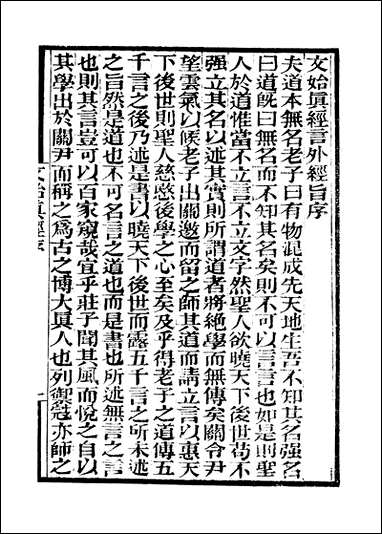 文始眞經言外經旨序
夫道本無名老子曰有物混成先天地生吾不知其名强名
曰道旣曰無名而不知其名矣則不可以言言也如是則聖
人於道惟當不立言不立文字然聖人欲曉天下後世苟不
强立其名以述其實則所謂道者將絶學而無傳矣關令尹
望雲氣以候老子出關邀而留之師其道而請立言以惠天
下後世則聖人慈愍後學之心至矣及乎得老子之道傳五
千言之後乃述是書以曉天下後世而露五千言之所未述
之旨然是道也不可名言之道也而是書也所述無言之言
也則其言豈可以百家窺哉宜乎莊子聞其風而悅之自以
其學出於關尹而稱之爲古之博大眞人也列禦寇亦師之
文始眞經序
一